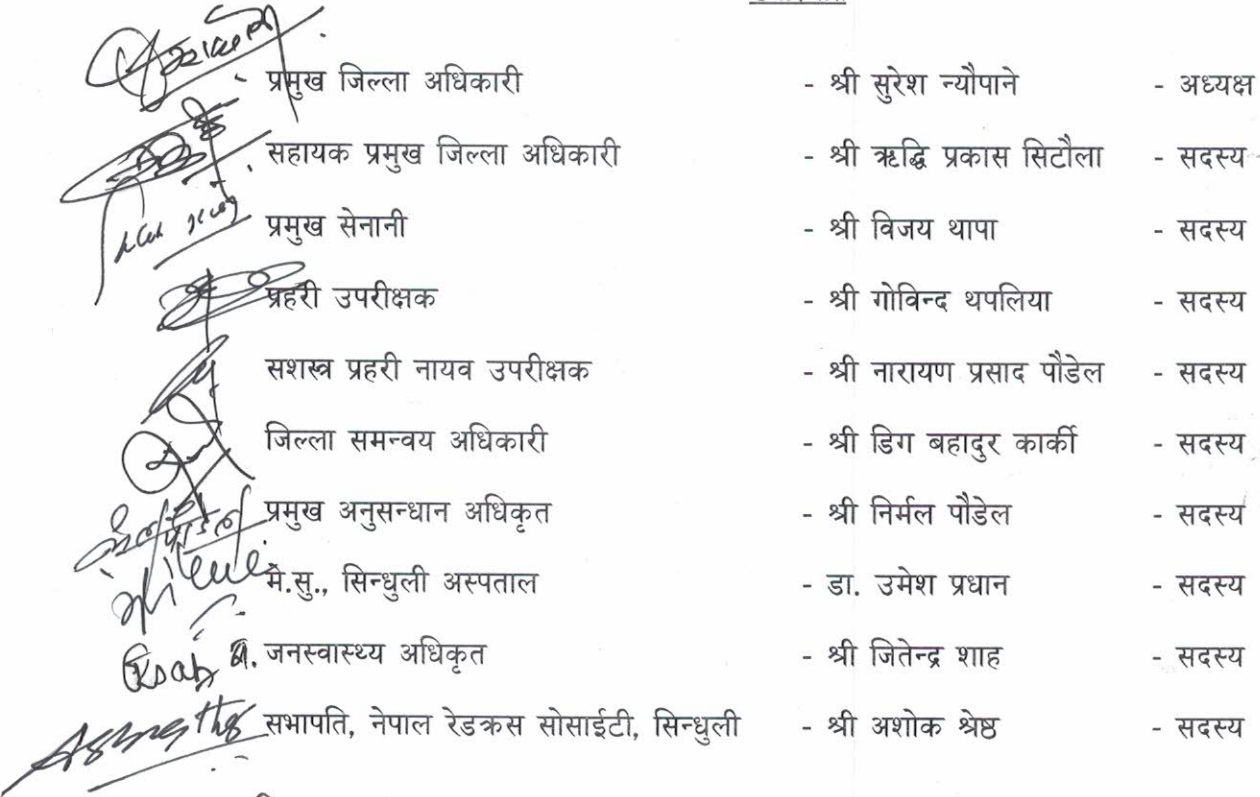 प्रमुख जिल्ला अधिकारी - श्री सुरेश न्यौपाने - अध्यक्ष
सहायक प्रमुख जिल्ला अधिकारी - श्री ऋद्धि प्रकास सिटौला - सदस्य
प्रमुख सेनानी - श्री विजय थापा - सदस्य
प्रहरी उपरीक्षक - श्री गोविन्द थपलिया - सदस्य
सशस्त्र प्रहरी नायव उपरीक्षक - श्री नारायण प्रसाद पौडेल - सदस्य
जिल्ला समन्वय अधिकारी - श्री डिग बहादुर कार्की - सदस्य
प्रमुख अनुसन्धान अधिकृत - श्री निर्मल पौडेल - सदस्य
मे.सु., सिन्धुली अस्पताल - डा. उमेश प्रधान - सदस्य
जनस्वास्थ्य अधिकृत - श्री जितेन्द्र शाह - सदस्य
सभापति, नेपाल रेडक्रस सोसाईटी, सिन्धुली - श्री अशोक श्रेष्ठ - सदस्य